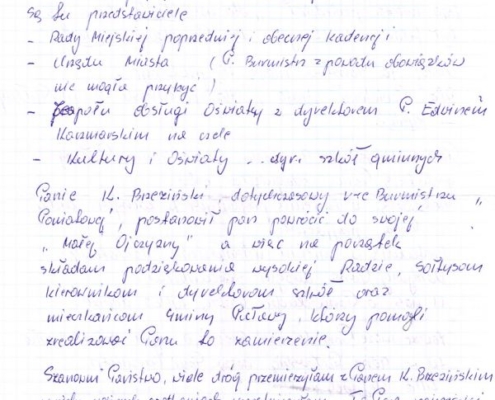 Są tu przedstawiciele
- Rady Miejskiej poprzedniej i obecnej kadencji
- Urzędu Miasta (P. Burmistrz z powodu obowiązków
nie mogła przybyć)
- Zespołu obsługi Oświaty z dyrektorem P. Edwinem
Kaczmarskim na czele
- Kultury i Oświaty .. dyr. szkół gminnych
Panie K. Brzeziński, dotychczasowy v-ce Burmistrzu "
Powiatowej, postanowił pan powrócić do swojej
"Małej Ojczyzny" a więc na początek
składam podziękowania wysokiej Radzie, Sołtysom
kierownikom i dyrektorom szkół oraz
mieszkańcom Gminy, którzy pomogli
zrealizować Panu to zamierzenie.
Szanowni Państwo, wiele dróg przemierzyłam z Panem K. Brzezińskim